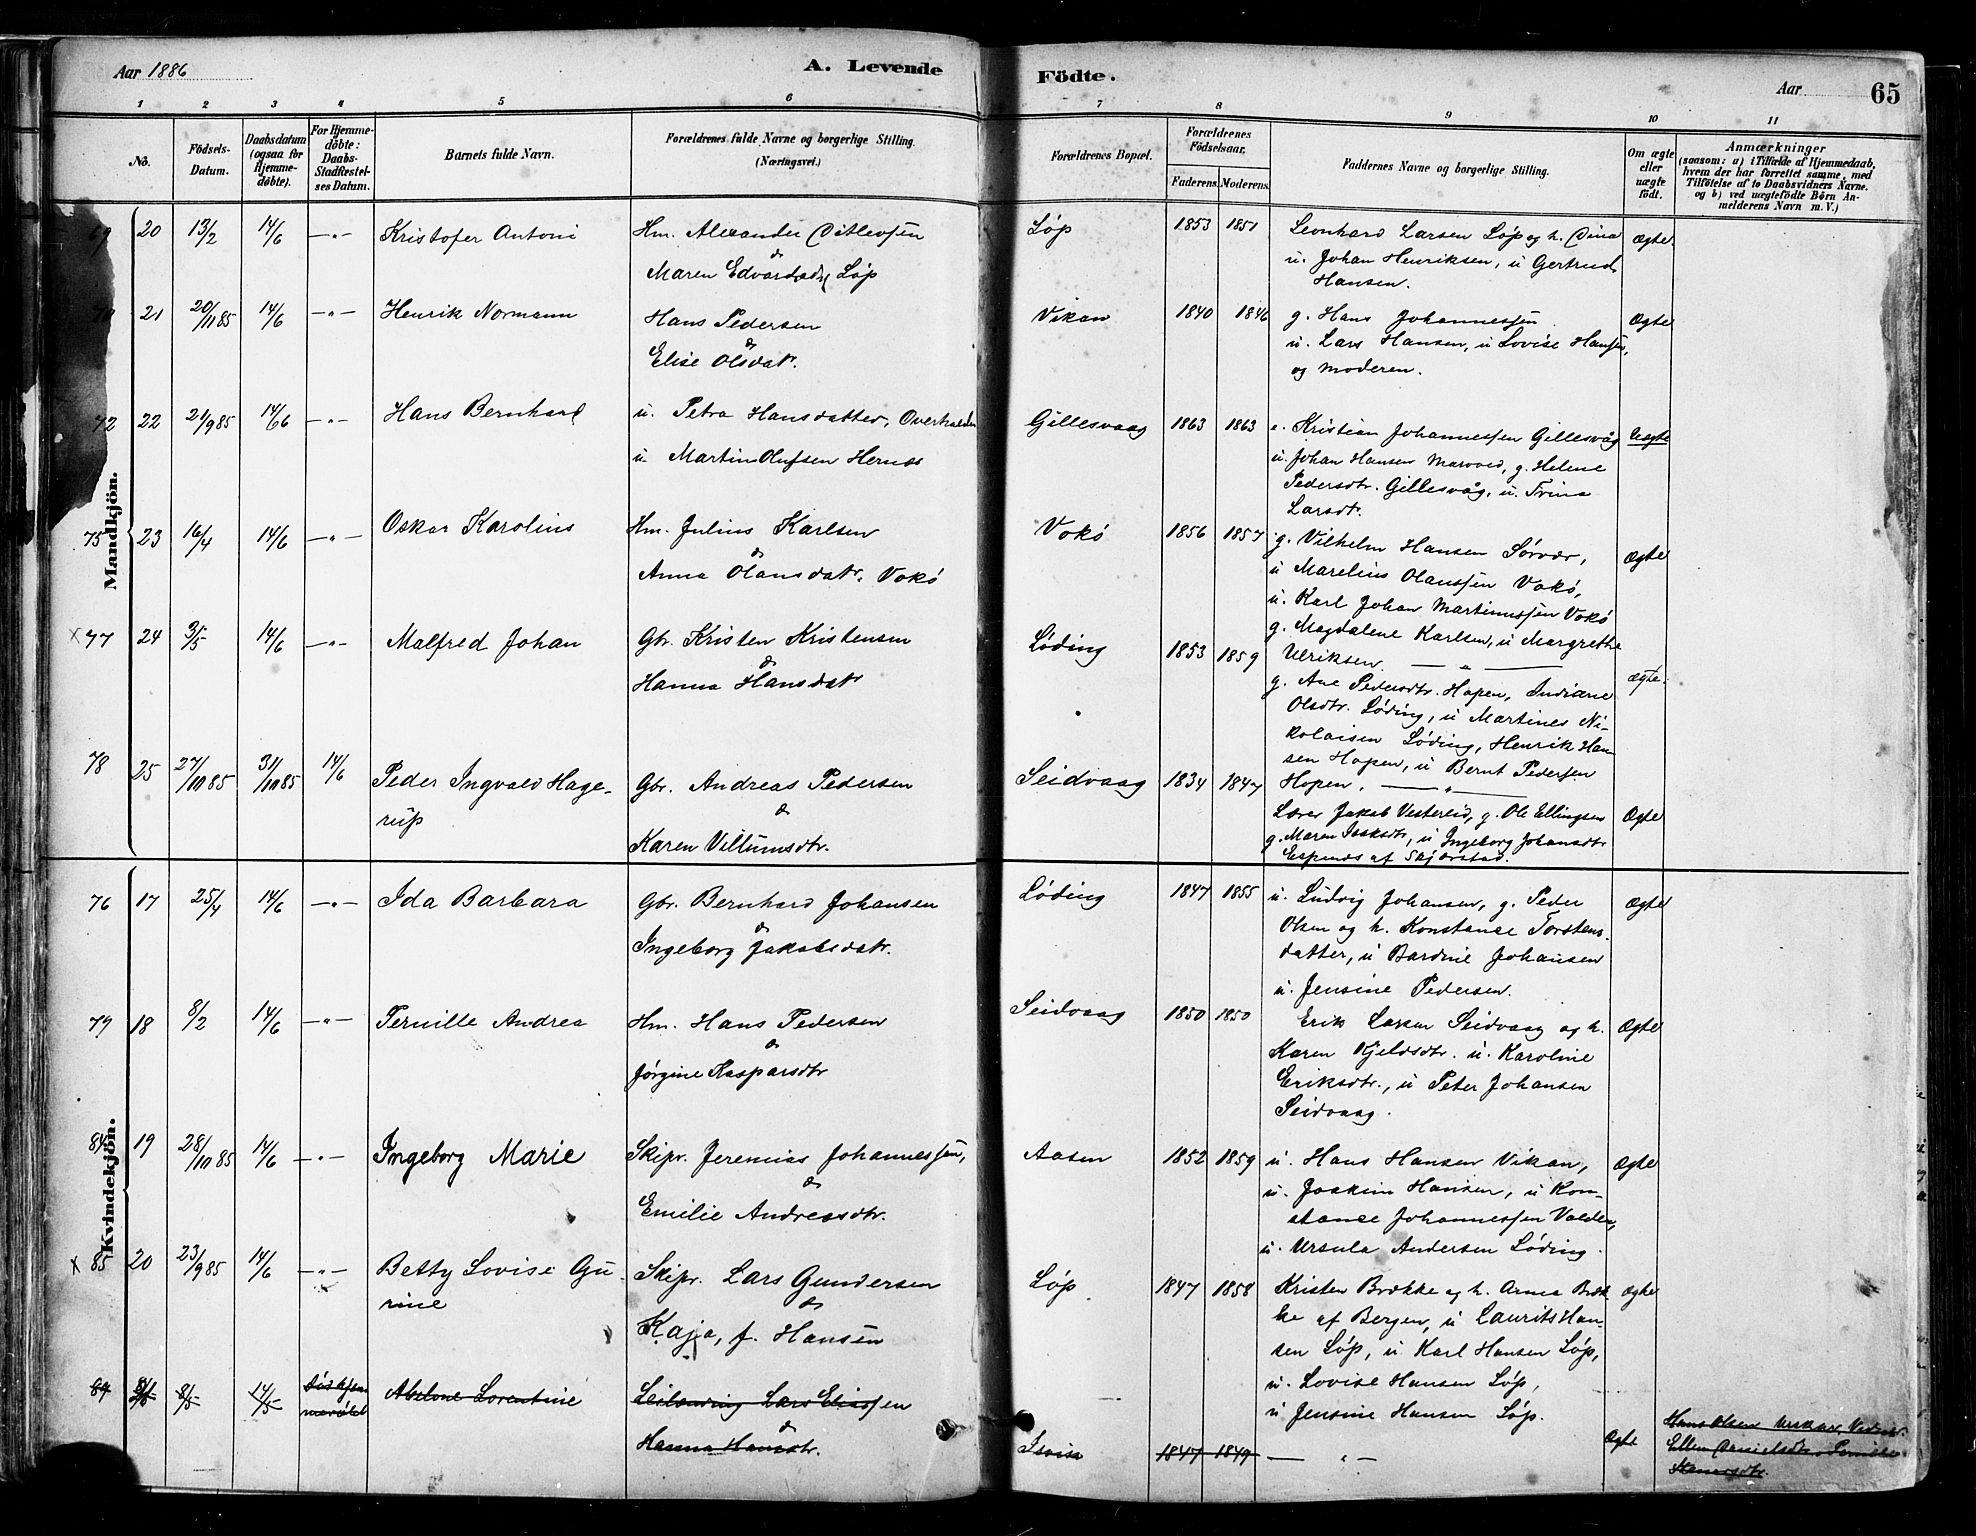 Aar 1886
A. Levende
Födte.
Aar
65
1 2 3 4 5 6 7 8 9 10 11
No.
Födsels-
Datum.
Daabsdatum
(ogsaa for
Hjemme-
döbte).
For Hjemme-
döbte:
Daabs-
Stadfæstel-
ses Datum.
Barnets fulde Navn.
Forældrenes fulde Navne og borgerlige Stilling.
(Næringsvei.)
Forældrenes Bopæl.
Forældrenes
Födselsaar.
Faderens. Moderens.
Faddernes Navne og borgerlige Stilling.
Om ægte
eller
uægte
födt.
Anmærkninger
(saasom: a) i Tilfælde af Hjemmedaab,
hvem der har forrettet samme, med
Tilföielse af to Daabsvidners Navne.
og b) ved uægtefödte Börn An-
melderens Navn m. V.)
Mandkjön.
69 20 13/2 14/6 —„— Kristofer Antoni
Hm. Alexander Ditlevsen
&
Maren Edvardsd. Løp
Løp 1853 1851
Leonhard Larsen Løp og h. Dina
u. Johan Henriksen, u Gertrud
Hansen.
Ægte.
21 20/11 85 14/6 —„— Henrik Normann
Hans Pedersen
&
Elise Olsdatr.
Vikan 1840 1846
g. Hans Johannessen
u. Lars Hansen, u Lovise Hansen,
og Moderen.
Ægte
72 22 21/9 85 14/6 —„— Hans Bernhard
u. Petra Hansdatter, Overhalden
u. Martin Olufsen Hernes
Gillesvaag 1863 1863
e. Kristian Johannessen Gillesvåg
u. Johan Hansen, g. Helene
Pedersdtr. Gillesvåg, u. Trina
Larsdtr.
Uægte
75 23 16/4 14/6 —„— Oskar Karolius
Hm. Julius Karlsen
&
Anna Olausdatr. Vokø
Vokø 1856 1857
g. Vilhelm Hansen Sørvær,
u Marelius Olaussen Vokø,
u. Karl Johan Martinussen Vokø
g. Magdalene Karlsen, u Margrethe
Ulriksen. —„—
Ægte
x 77 24 3/5 14/6 —„— Malfred Johan
Gbr. Kristen Kristensen
&
Hanna Hansdatr
Løding 1853 1859
g. Ane Pedersdtr. Hopen, Indiane
Olsdtr. Løding, u Martines Ni-
kolaisen Løding, Henrik Han-
sen Hopen, u Bernt Pedersen
Hopen. —„—
Ægte.
78 25 27/10 85 31/10 85 14/6 Peder Ingvald Hage-
rup
Gbr. Andreas Pedersen
&
Karen Villumsdtr.
Seidvaag 1834 1847
Lærer Jakob Vestereid, g. Ole Ellingsen
g. Maren Isaksdtr, u Ingeborg Johansdtr
Espenes af Skjørstad.
Ægte
Kvindekjön.
76 17 25/4 14/6 —„— Ida Barbara
Gbr. Bernhard Johansen
&
Ingeborg Jakobsdatr.
Løding 1847 1855
u. Ludvig Johansen, g. Peder
Olsen og h. Konstance Torstens-
datter, u Bardine Johansen
u. Jensine Pedersen.
Ægte
79 18 8/2 14/6 —„— Pernille Andrea
Hm. Hans Pedersen
&
Jørgine Kasparsdtr
Seidvaag 1850 1850
Erik Larsen Seidvaag og h.
Karen Kjeldsdtr. u. Karoline
Eriksdtr., u Peter Johansen
Seidvaag.
Ægte
84 19 28/10 85 14/6 —„— Ingeborg Marie
Skipr. Jeremias Johannessen,
&
Emilie Andreasdtr.
Aasen 1852 1859
u. Hans Hansen Vikan,
u. Joakim Hansen, u Kon-
stance Johannessen Valden,
u. Ursula Andersen Løding.
Ægte
x 85 20 23/9 85 14/6 —„— Betty Lovise Gu-
rine
Skipr. Lars Gundersen
&
Kaja, f. Hansen
Løp 1847 1858
Kristen Brække og h. Anna Bræk-
ke af Bergen, u Laurits Han-
sen Løp, u Karl Hansen Løp,
u. Lovise Hansen Løp,
u Jensine Hansen Løp.
Ægte
8/5 14/5 Abelone Lorentine
Leilænding Lars Eliassen
&
Hanna Hansdtr.
1847 1849 — „ —
Ægte
Hans Olsen
Ellen Danielsdtr. Pernille